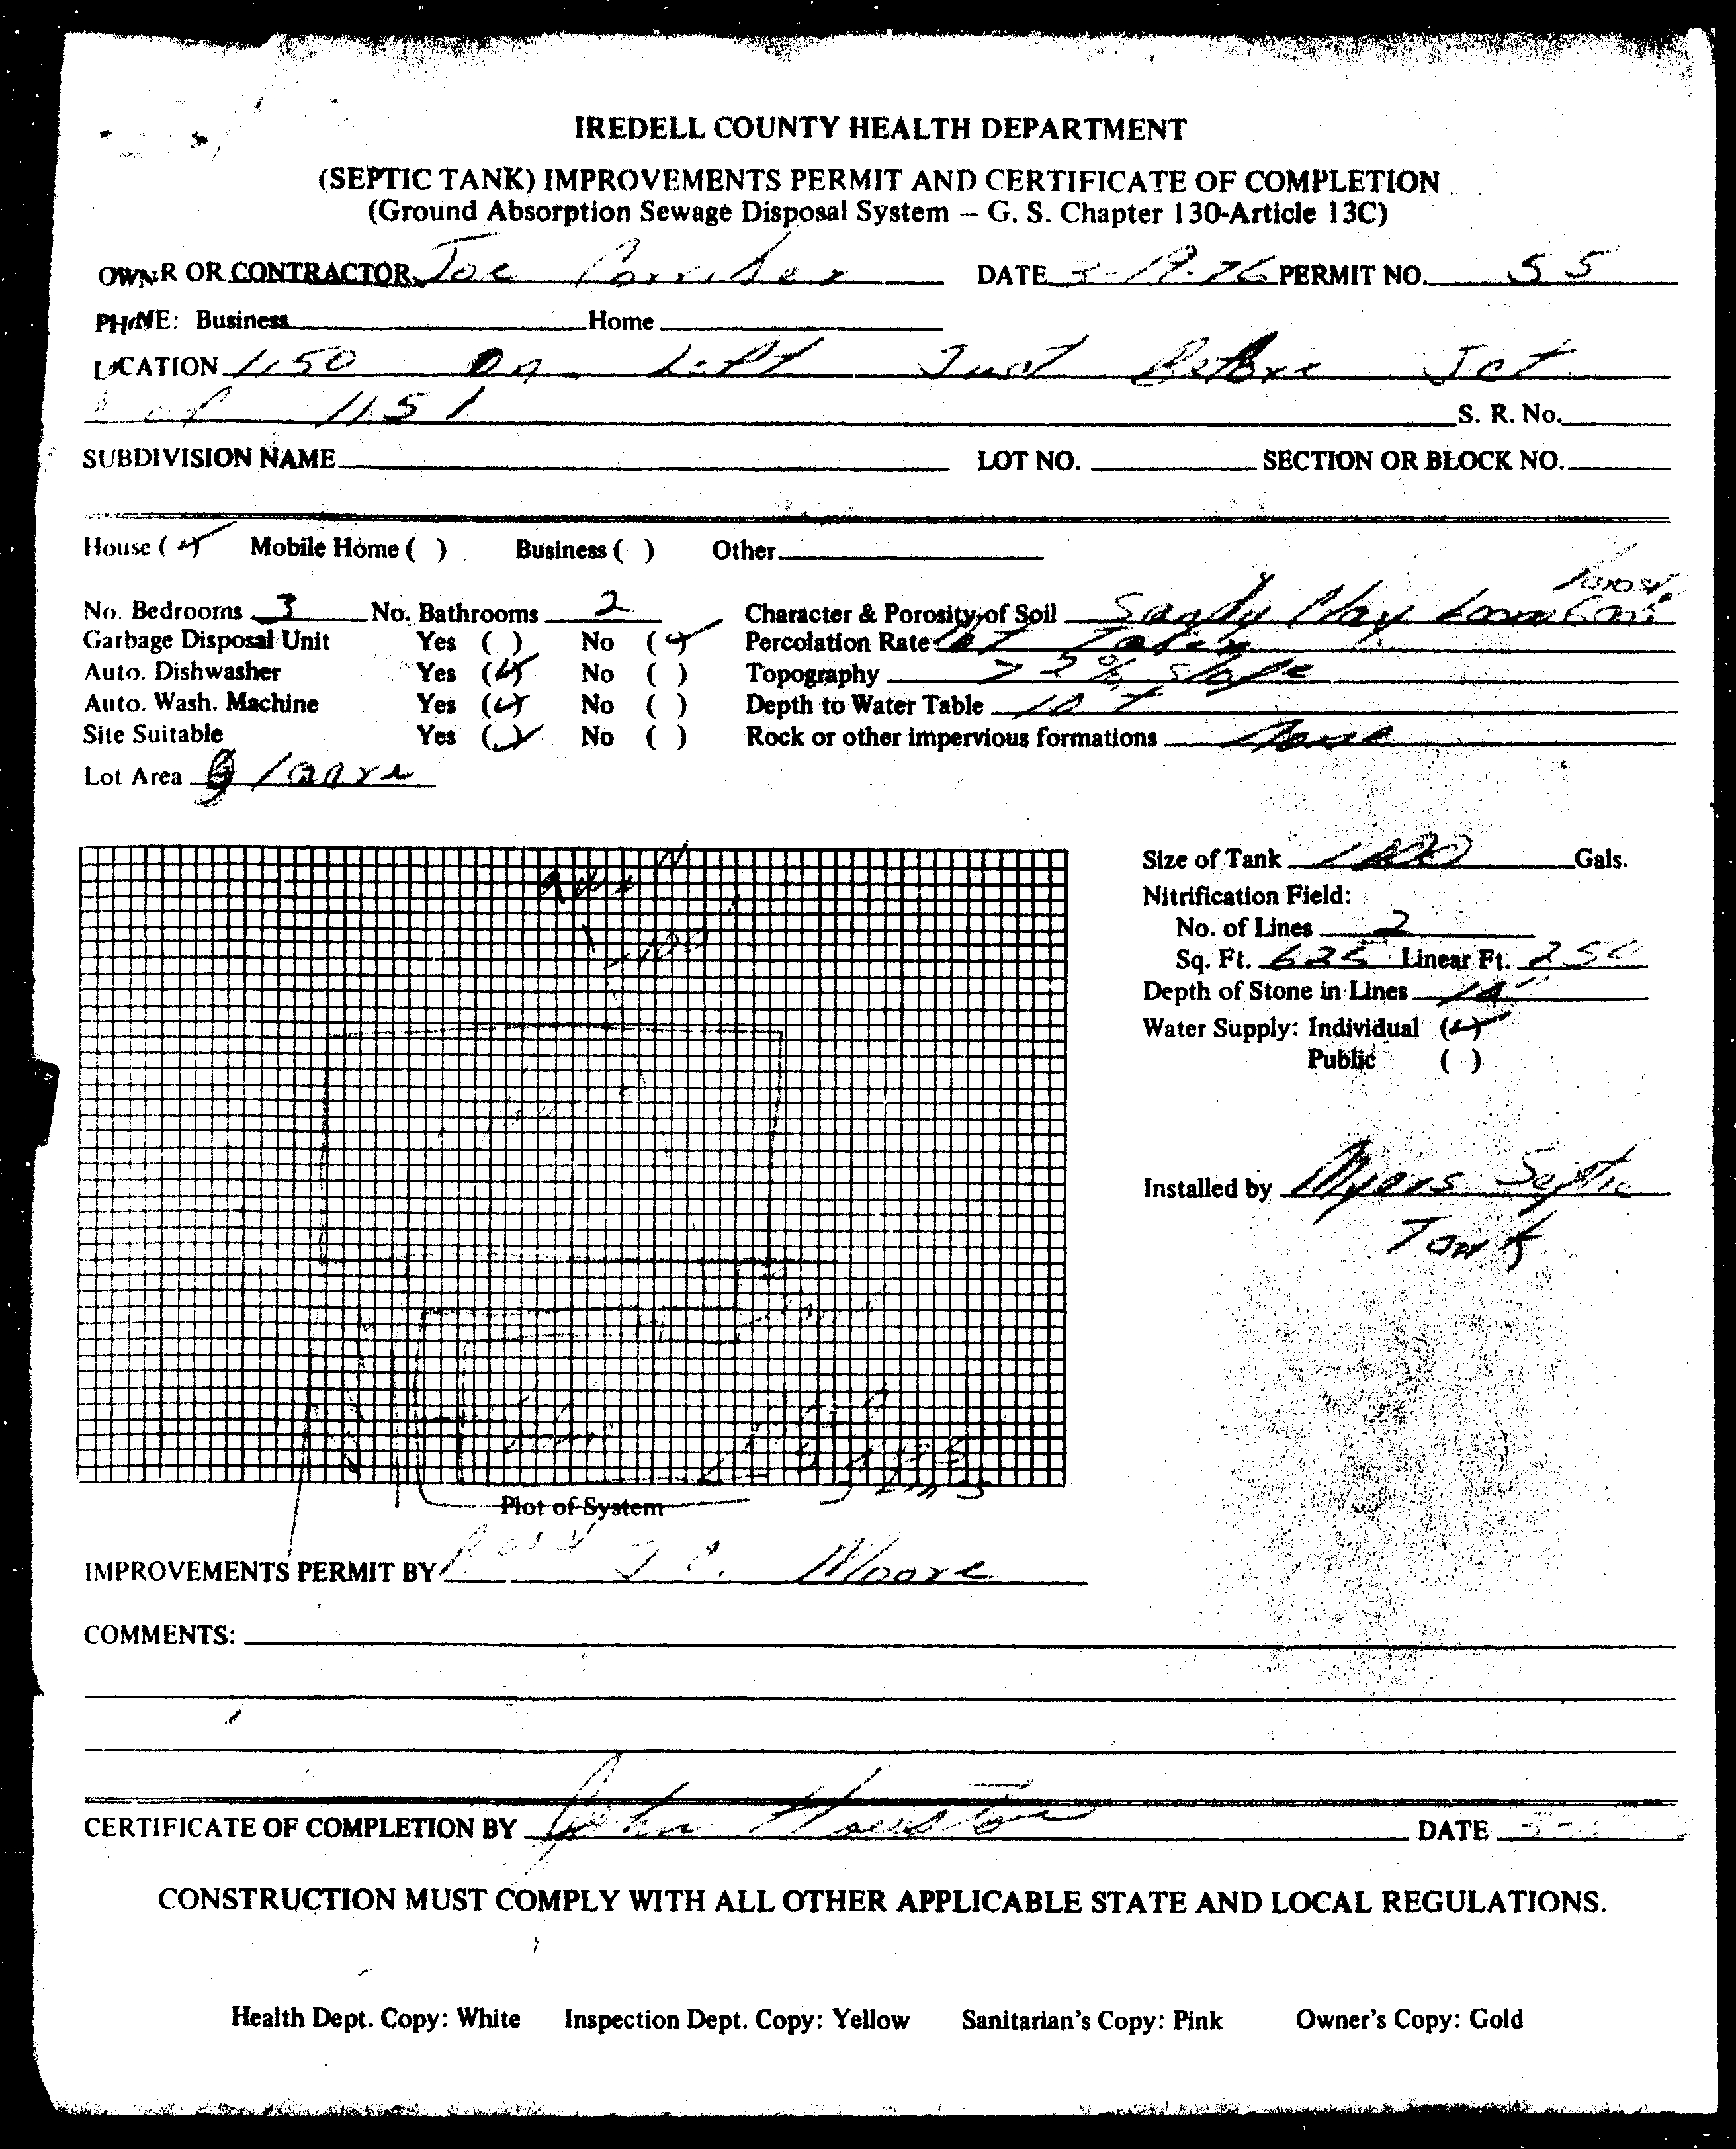 IREDELL COUNTY HEALTH DEPARTMENT
(SEPTIC TANK) IMPROVEMENTS PERMIT AND CERTIFICATE OF COMPLETION
(Ground Absorption Sewage Disposal System – G. S. Chapter 130-Article 13C)
OWNER OR CONTRACTOR Joe DATE 3-19-76 PERMIT NO. 55
PHONE: Business Home
LOCATION 1150 On Left Just Before Jct
of 1151 S. R. No.
SUBDIVISION NAME LOT NO. SECTION OR BLOCK NO.
House (✓) Mobile Home ( ) Business ( ) Other
No. Bedrooms 3 No. Bathrooms 2 Character & Porosity of Soil Sandy Clay Loam
Garbage Disposal Unit Yes ( ) No (✓) Percolation Rate Not Taken
Auto. Dishwasher Yes (✓) No ( ) Topography slope
Auto. Wash. Machine Yes (✓) No ( ) Depth to Water Table 10 +
Site Suitable Yes (✓) No ( ) Rock or other impervious formations None
Lot Area 1 acre
N
100'
Size of Tank 1000 Gals.
Nitrification Field:
No. of Lines 2
Sq. Ft. 625 Linear Ft. 250
Depth of Stone in Lines
Water Supply: Individual (✓)
Public ( )
Installed by Myers Septic
Tank
Lines
Plot of System
Road
IMPROVEMENTS PERMIT BY J C. Moore
COMMENTS:
CERTIFICATE OF COMPLETION BY John Houston DATE
CONSTRUCTION MUST COMPLY WITH ALL OTHER APPLICABLE STATE AND LOCAL REGULATIONS.
Health Dept. Copy: White Inspection Dept. Copy: Yellow Sanitarian's Copy: Pink Owner's Copy: Gold